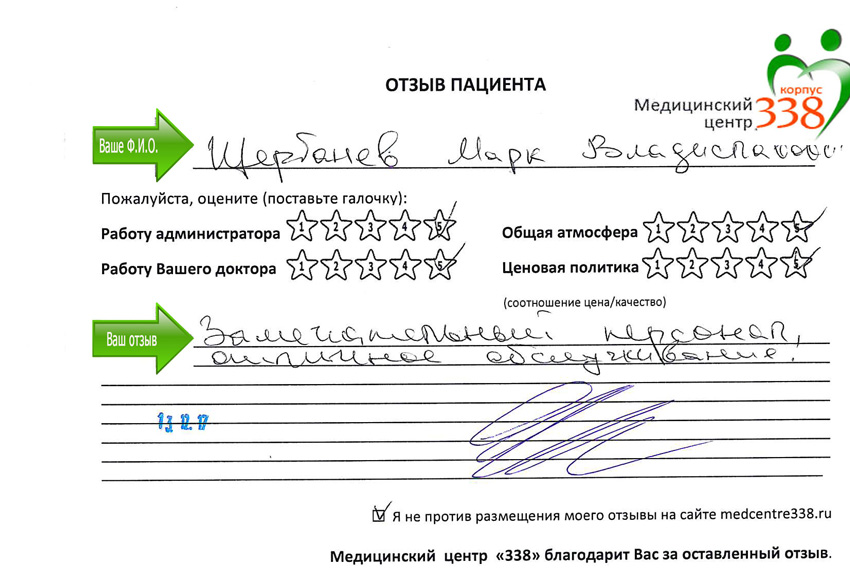 ОТЗЫВ ПАЦИЕНТА
корпус
Медицинский центр 338
Ваше Ф.И.О.
Щербанев Марк Владиславович
Пожалуйста, оцените (поставьте галочку):
Работу администратора 1 2 3 4 5
Общая атмосфера 1 2 3 4 5
Работу Вашего доктора 1 2 3 4 5
Ценовая политика 1 2 3 4 5
(соотношение цена/качество)
Ваш отзыв
Замечательный персонал,
отличное обслуживание.
13.12.17
Я не против размещения моего отзывы на сайте medcentre338.ru
Медицинский центр «338» благодарит Вас за оставленный отзыв.